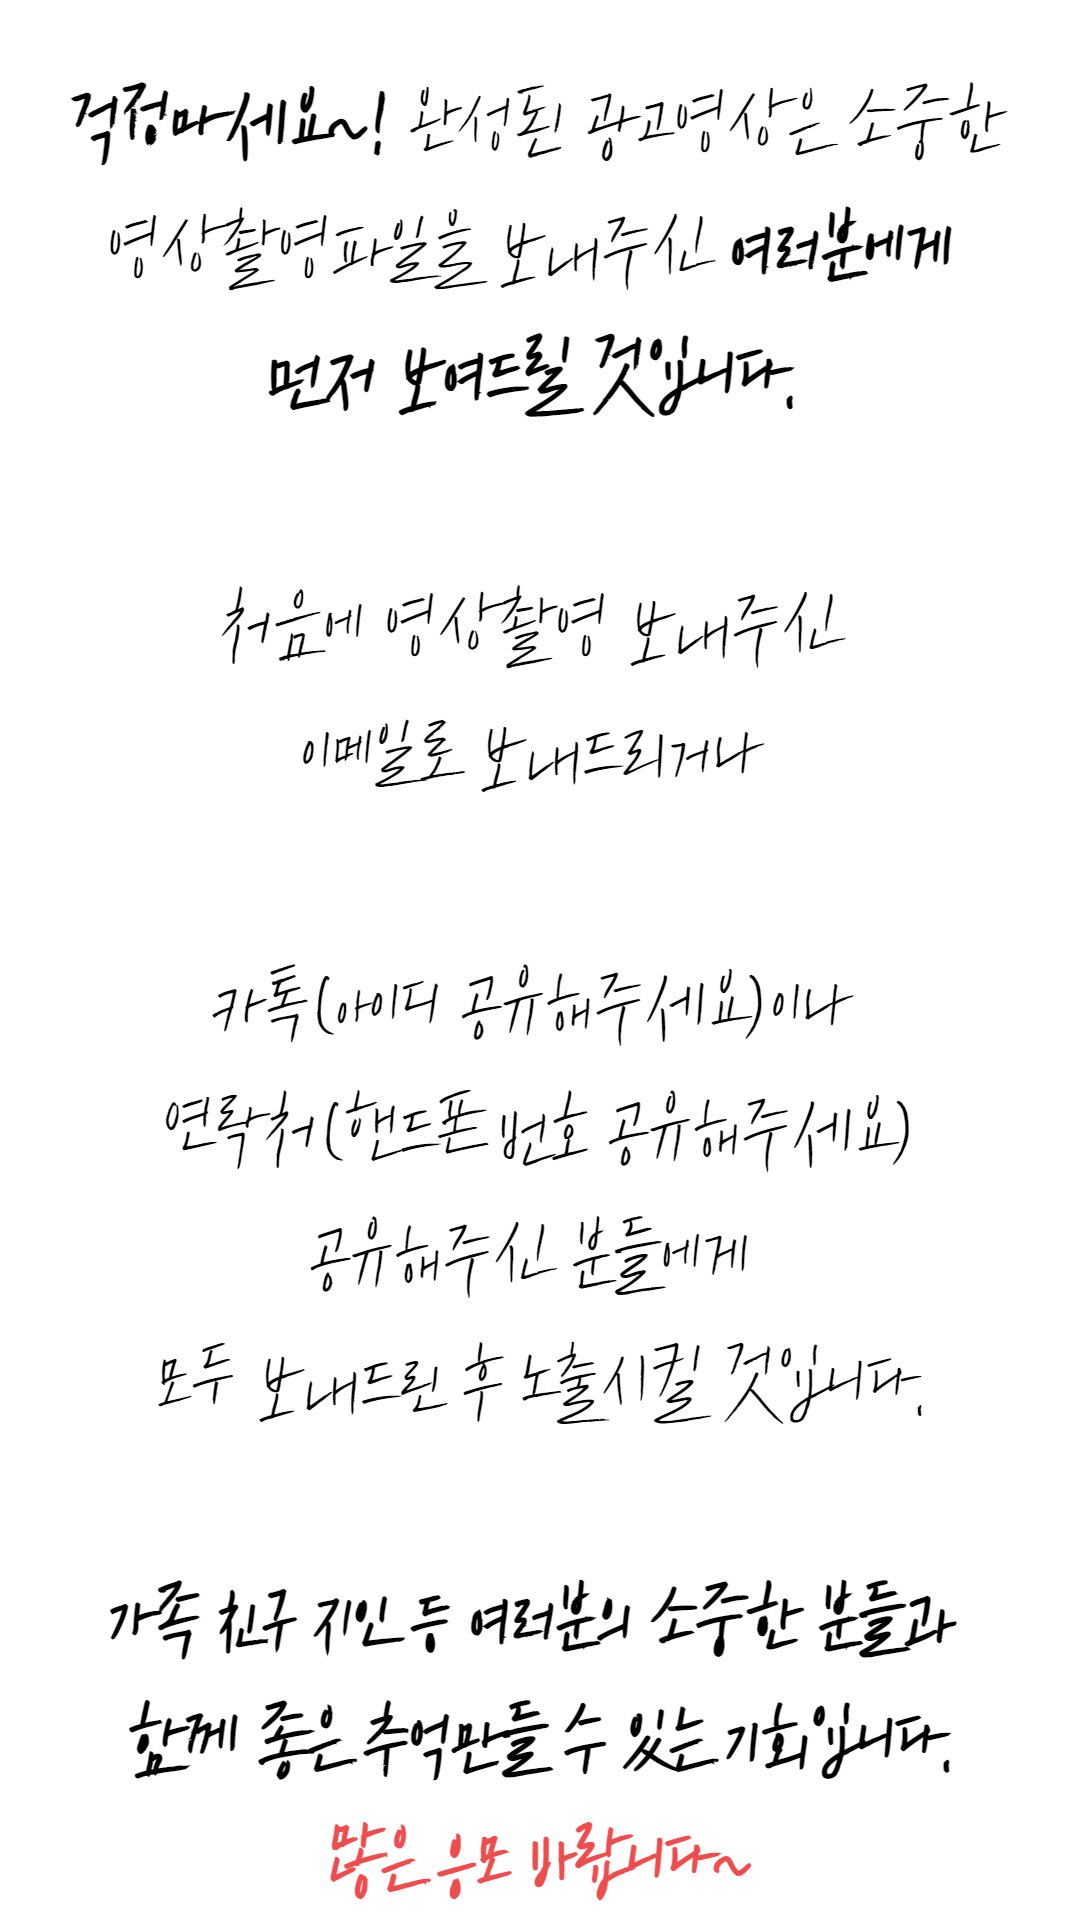 걱정마세요~! 완성된 광고영상은 소중한
영상촬영파일을 보내주신 여러분에게
먼저 보여드릴 것입니다.
처음에 영상촬영 보내주신
이메일로 보내드리거나
카톡(아이디 공유해주세요)이나
연락처(핸드폰 번호 공유해주세요)
공유해주신 분들에게
모두 보내드린 후 노출시킬 것입니다.
가족 친구 지인 등 여러분의 소중한 분들과
함께 좋은 추억만들 수 있는 기회입니다.
많은 응모 바랍니다~